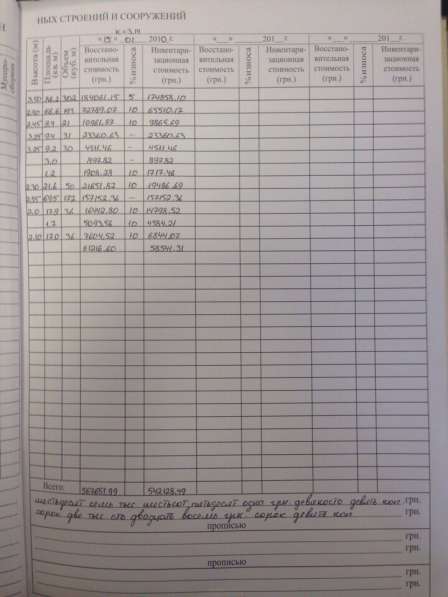 НЫХ СТРОЕНИЙ И СООРУЖЕНИЙ
Высота (м) Площадь (кв. м) Объем (куб. м) «15» 01 2010 г. «__»__ 201_ г. «__»__ 201_ г.
Восстано-вительная стоимость (грн.) % износа Инвентари-зационная стоимость (грн.) Восстано-вительная стоимость (грн.) % износа Инвентари-зационная стоимость (грн.) Восстано-вительная стоимость (грн.) % износа Инвентари-зационная стоимость (грн.)
3.50 302 184061.15 5 174858.10
10 65510.17
2.45 8.4 21 10961.87 10 9865.69
3.25 9.4 31 23360.63 – 23360.63
3.25 9.2 30 4511.46 – 4511.46
3,0 897.82 – 897.82
1.2 10 1717.46
2.30 21.6 50 21651.87 10 19486.69
2.55 172 157152.36 – 157152.36
2.0 17.9 36 16442.80 10 14798.52
1.7 5093.56 10 4584.21
2.10 17.0 36 7604.52 10 6844.07
61216.60 58541.31
Всего: 567651.99 542128.49
шестьдесят семь тыс шестьсот пятьдесят одна грн. девяносто девять коп грн.
сорок две тыс сто двадцать восемь грн сорок девять коп грн.
прописью
грн.
грн.
прописью
грн.
грн.